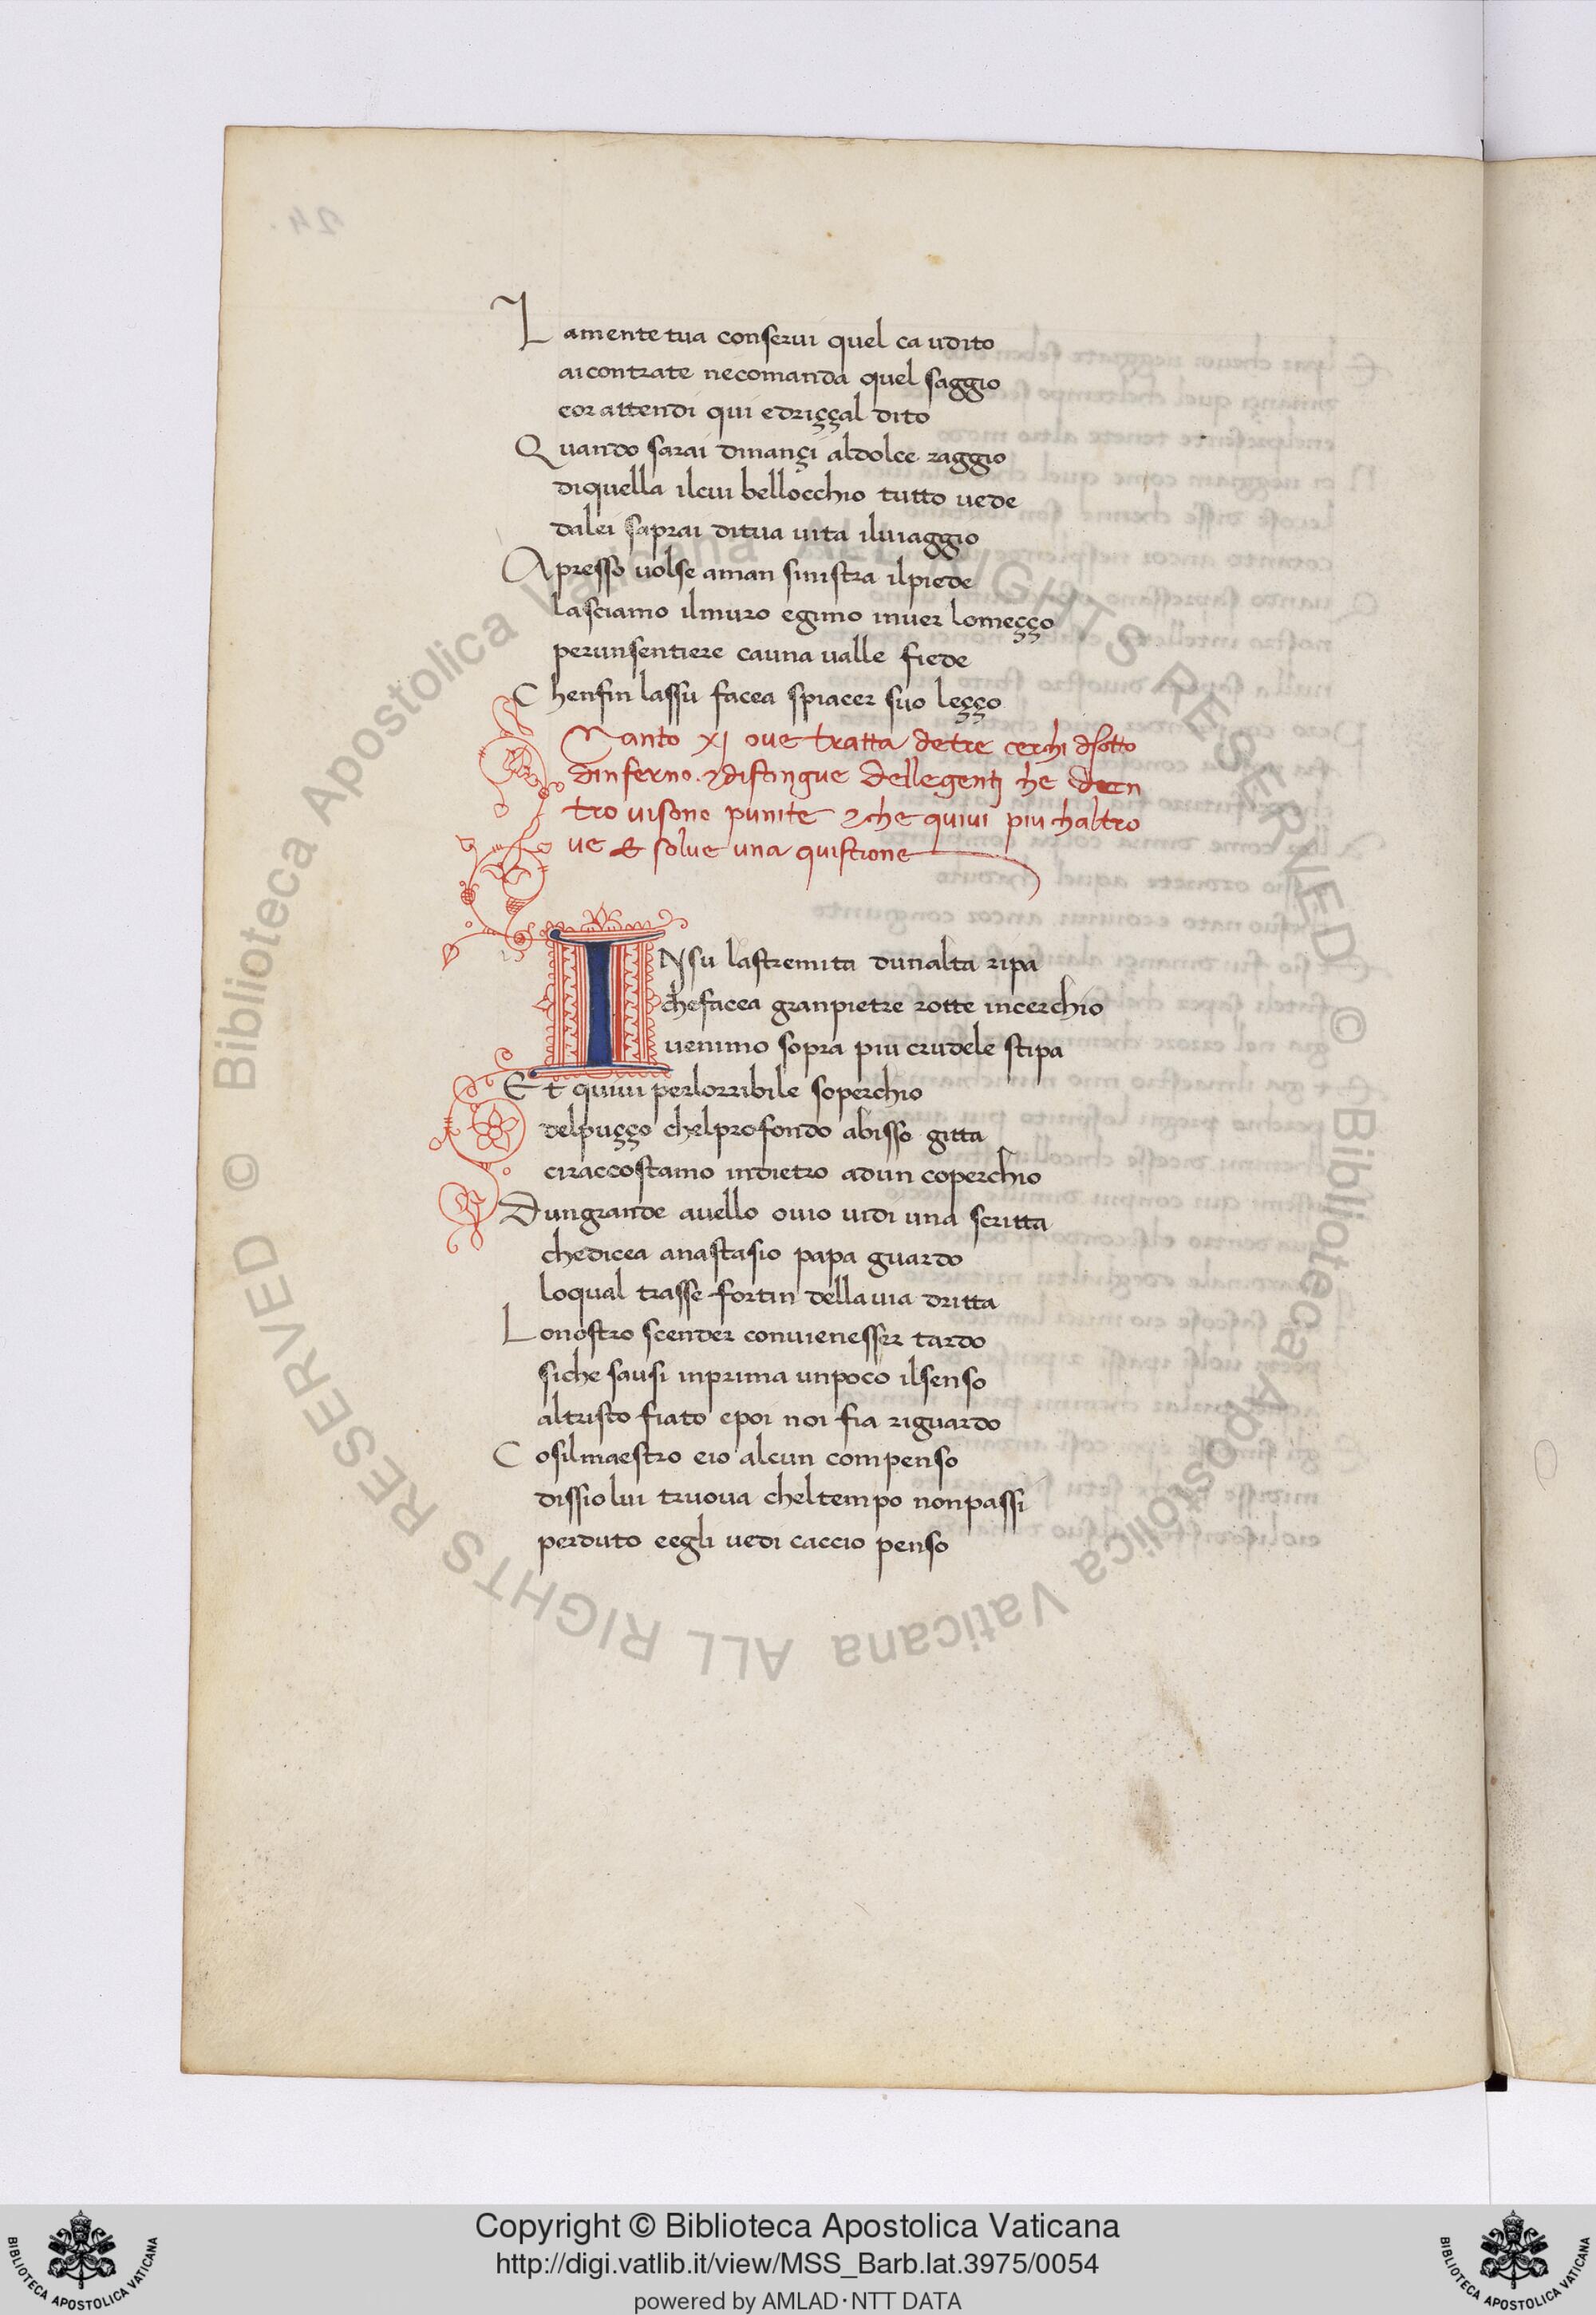 Lamente tua conserui quel ca udito
aicontrate necomanda quel saggio
eor attendi qui edriççal dito
Quando sarai dinançi aldolce raggio
diquella ilcui bellocchio tutto uede
dalei saprai ditua uita iluiaggio
Apresso uolse aman sinistra ilpiede
lasciamo ilmuro egimo inuer lomeçço
perunsentiere cauna ualle fiede
Chenfin lassu facea spiacer suo leçço
Canto XI oue tratta detre cerchi dsotto
dinferno. & distingue dellegentj he
tro uisono punite & che quiui piu chaltro
ue & solue una quistione
INsu lastremita dunalta ripa
chefacea granpietre rotte incerchio
uenimo sopra piu crudele stipa
Et quiui perlorribile soperchio
delpuçço chelprofondo abisso gitta
ciraccostamo indietro adun coperchio
Dungrande auello ouio uidi una scritta
chedicea anastasio papa guardo
loqual trasse fortin dellauia dritta
Lonostro scender conuienesser tardo
siche sausi inprima unpoco ilsenso
altristo fiato epoi noi fia riguardo
Cosilmaestro eio alcun compenso
dissiolui truoua cheltempo nonpassi
perduto eegli uedi caccio penso
Copyright © Biblioteca Apostolica Vaticana
http://digi.vatlib.it/view/MSS_Barb.lat.3975/0054
powered by AMLAD·NTT DATA
BIBLIOTECA APOSTOLICA VATICANA
BIBLIOTECA APOSTOLICA VATICANA
© Biblioteca Apostolica Vaticana ALL RIGHTS RESERVED © Biblioteca Apostolica Vaticana ALL RIGHTS RESERVED